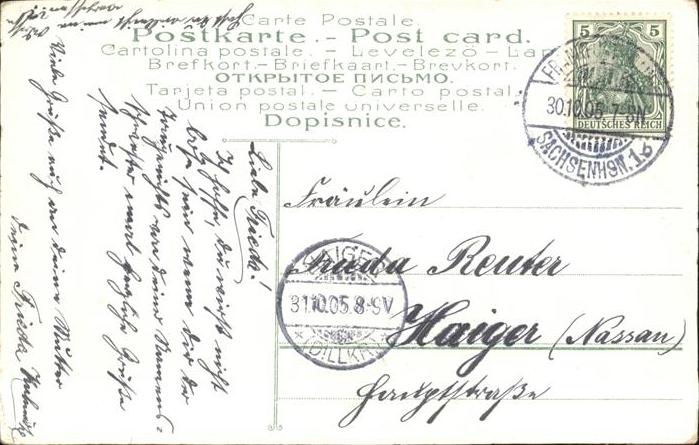 Carte Postale.
Postkarte. - Post card.
Cartolina postale. - Levelező - Lap
Brefkort. - Briefkaart. - Brevkort.
ОТКРЫТОЕ ПИСЬМО.
Tarjeta postal. - Carto postal.
Union postale universelle.
Dopisnice.
5 5
DEUTSCHES REICH
30.10.05. 7-8N
SACHSENHSN. 1b
HAIGER
31.10.05.8-9V
* (DILLKR.) *
Fräulein
Frieda Reuter
Haiger (Nassau)
Hauptstraße
Liebe Frieda!
Ich hoffe, du wirst nicht
böse sein wenn dir der
an deine Namens-
Schwester
sendet.
Viele Grüße auch an deine Mutter
deine Frieda